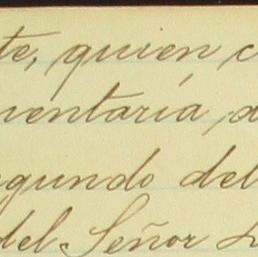 te, quien c
mentaría, d
egundo del
del Señor L